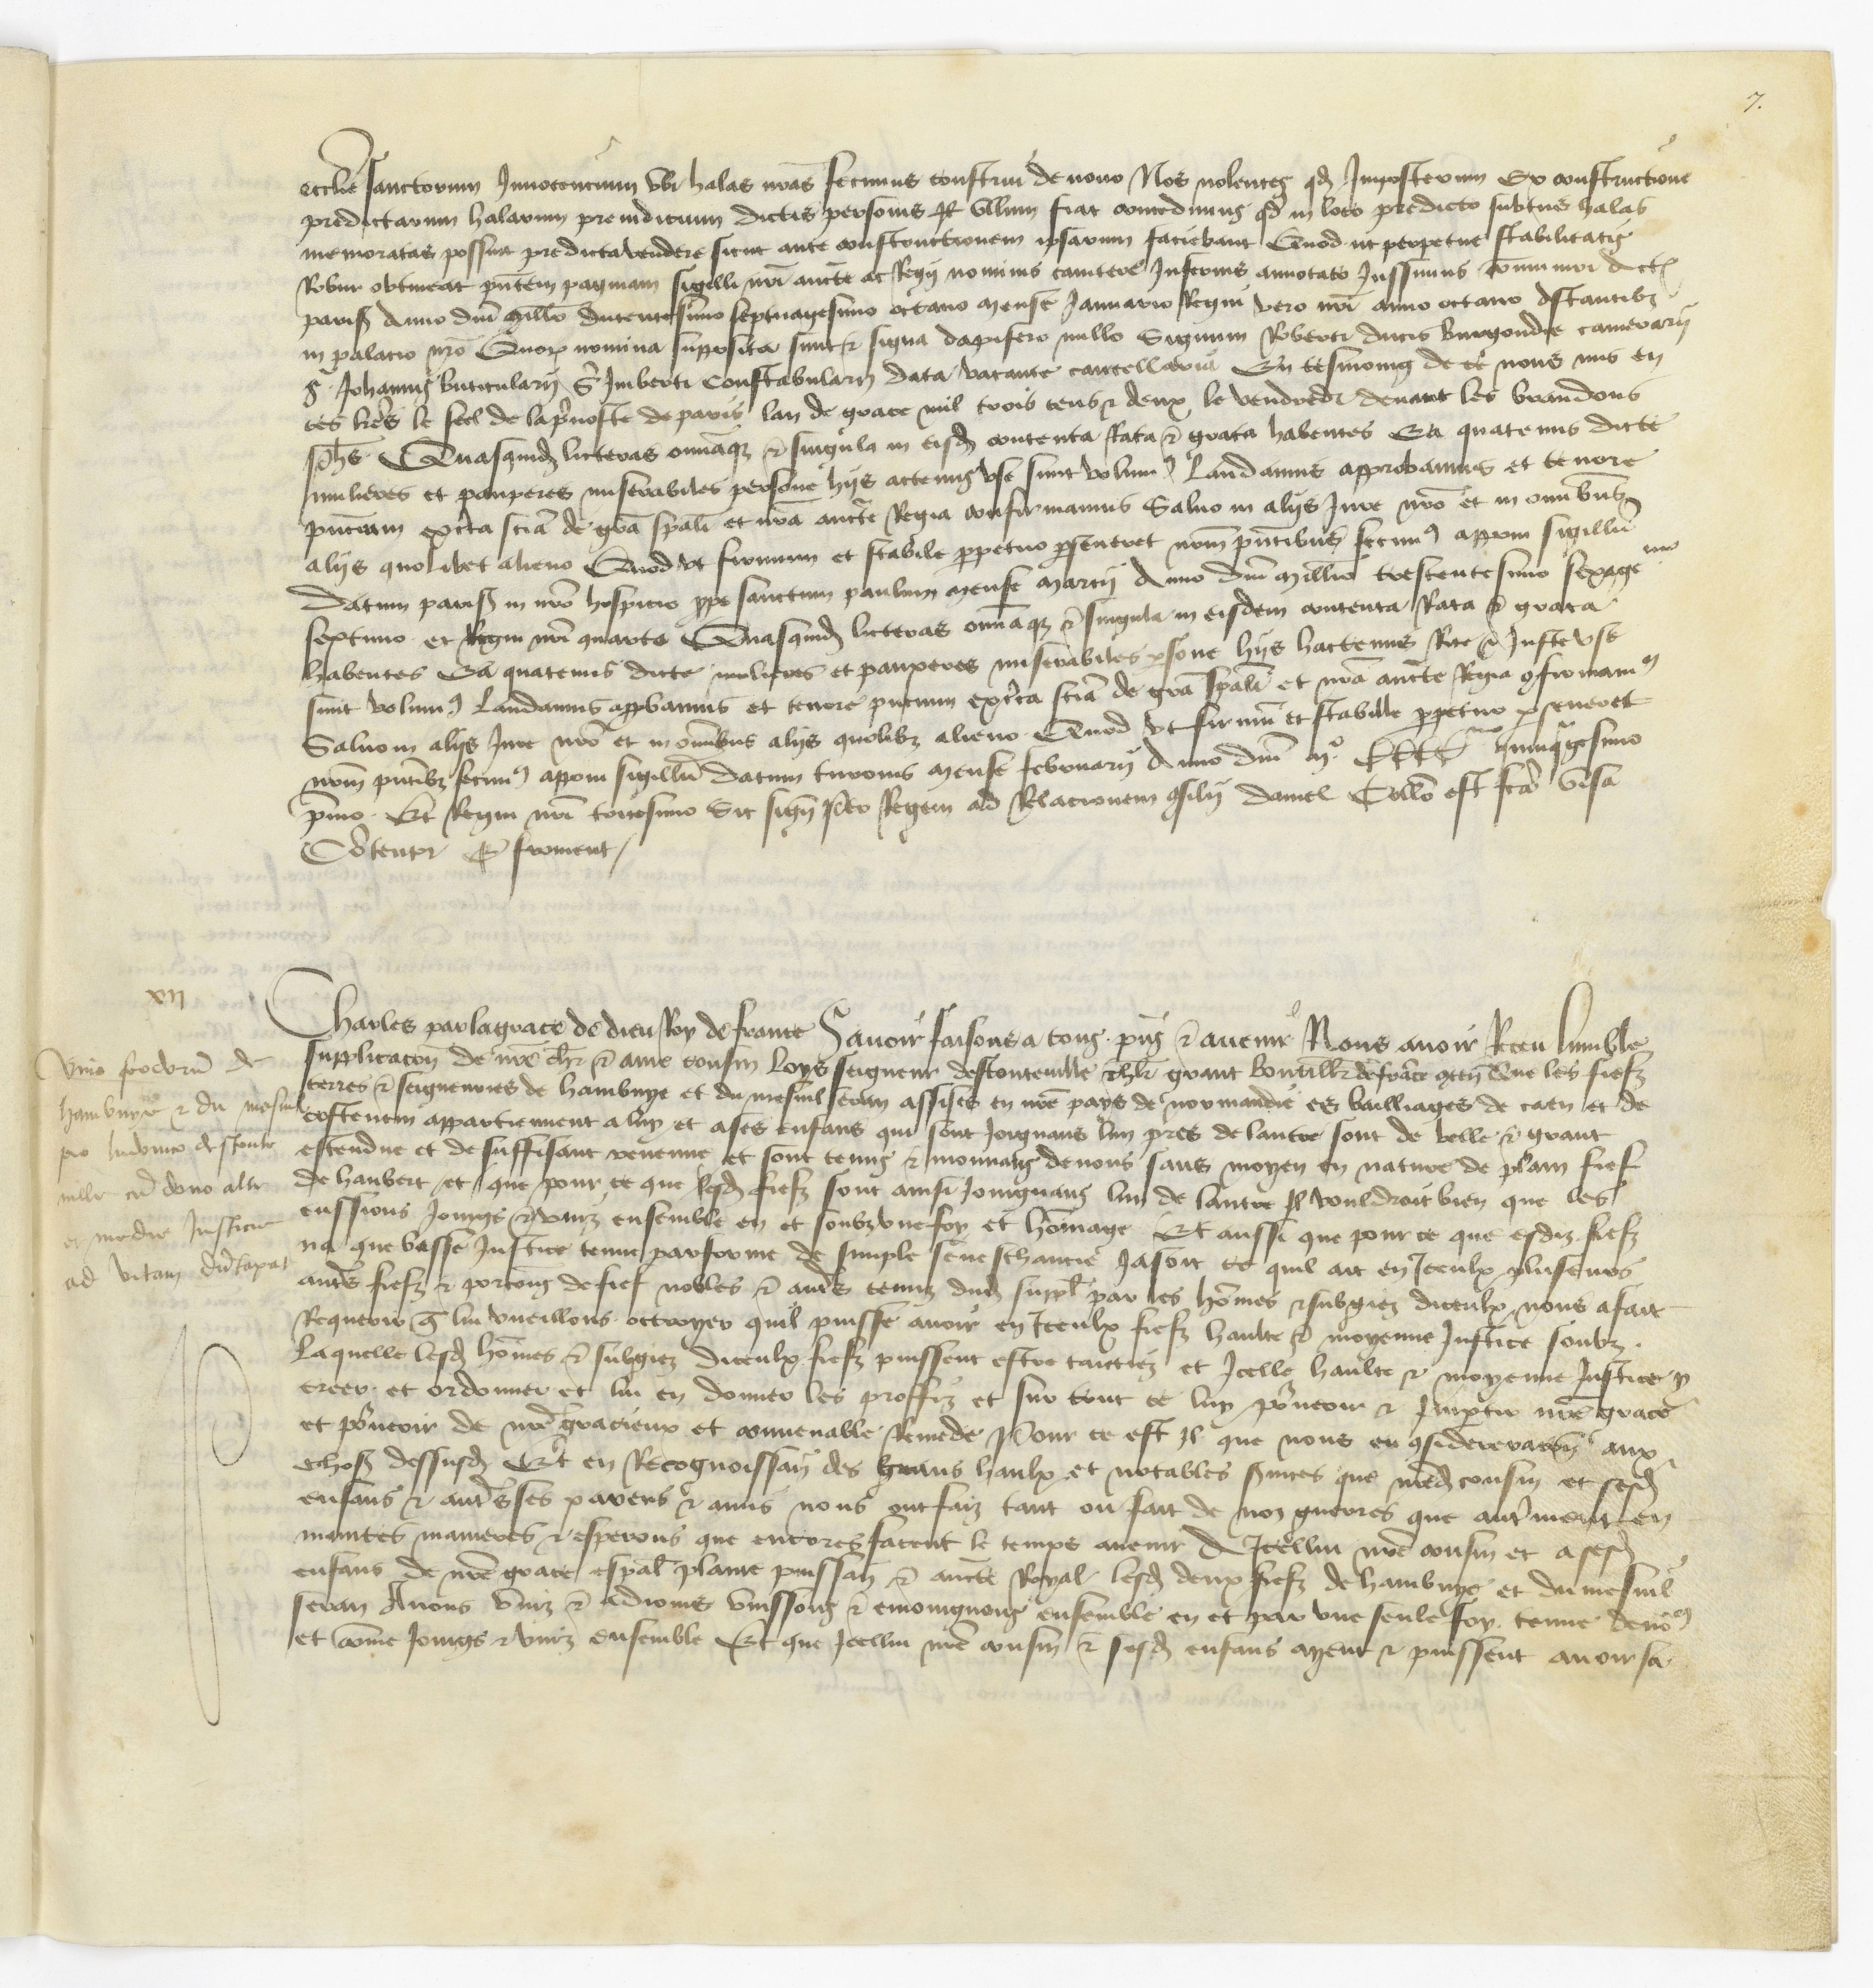 7.
ecclie sanctorum Innocencium Vbi halas nras fecimus construi de novo Nos nolentes qd Imposterum Ex constructione
predictarum halarum preiudicium dictis personis Vllum fiat concedimus qd in loco predicto subtus halas
memoratas possint predicta vendere sicut ante constructionem ipsarum faciebant Quod ut perpetue stabilitatis
Robur obtineat pntem paginam sigilli nri aucte ac Regij nominis caractere Inferius annotato Jussimus communiri Act
paris Anno dni Millo ducentesimo septuagesimo octavo mense Januario Regni vero nri anno octavo astantibz
in palacio nro Quor nomina supposita sunt et signa dapifero nullo Signum Roberti ducis burgondie camerarij
S Johannis buticularij S Imberti Constabularij data vacante cancellaria En tesmoing de ce nous avons mis en
ces lres le seel de la pvoste de paris lan de grace mil trois cens et deux le vendredi devant les brandons
Quasquidz litteras omaqz et singula in eisdz contenta Rata et grata habentes Ea quatenus dicte
mulieres et pauperes miserabiles persone hijs actenus Vse sunt volum Laudamus approbamus et tenore
pncium excta scia de gra spali et nra aucte Regia confirmamus Salvo in alijs Jure nro et in omibus
alijs quolibet alieno Quod Vt firmum et stabile ppetuo pseveret nrm pntibus fecim apponi sigillu
Datum paris in nro hospicio ppe sanctum paulum mense marcij Anno dni Millio trescentesimo sexagemo
septimo et Regni nri quarto Quasquidz litteras omaqz et singula in eisdem contenta Rata et grata
habentes Ea quatenus dicte mulieres et pauperes miserabiles psone hijs hactenus Rite et Juste vse
sunt volum Laudamus appbamus et tenore pncium excta scia de gra spali et nra aucte Regia 9firmam9
Salvo in alijs Jure nro et in omibus alijs quolibz alieno Quod Vt firmu et stabille ppetuo pseveret
nrm pntibz fecim apponi sigillu Datum turonis mense februarij Anno dni mo CCCCmo quinqgesimo
pmo Et Regni nri tricesimo Sic sign p Regem ad Relacionem 9silij Daniel Collo est fca Visa
Contentor E froment
xij
Charles par la grace de dieu Roy de france Savoir faisons a tous pns et avenir Nous avoir Receu lumble
supplicacon de nre chr et ame cousin Loys seigneur destouteville chlr grant bouteillr de france conten Que les fiefz
terres et seigneuries de hambuye et du mesnil ceran assises en nre pays de normandie es bailliages de caen et de
costentin appartiennent a luy et a ses enfans qui sont Joignans lun pres de lautre sont de belle et grant
estendue et de suffisant revenue et sont tenus et mouvans de nous sans moyen en nature de plain fief
de haubert et que pour ce que lesd fiefz sont ainsi Joingnans lun de lautre Il vouldroit bien que les
eussions Joings et Vniz ensemble en et soubz vne foy et homage Et aussi que pour ce que esdiz fiefz
na que basse Justice tenue par forme de simple seneschaucie Jasoit ce quil ait en Iceulx pluseurs
autrs fiefz et porcons de fief nobles et autrs tenuz dud suppl par les homes et subgiez diceulx nous a fait
Requerir q lui vueillons octroyer quil puisse avoir en Iceulx fiefz haulte et moyenne Justice soubz
Laquelle lesd homes et subgiez diceulx fiefz puissent estre traictiez et Icelle haulte et moyenne Justice y
creer et ordonner et lui en donner les proffiz et sur tout ce luy pourveoir et Impartir nre grace
et pourveoir de nre gracieux et convenable Remede Pour ce est Il que nous en 9sideracion aux
choses dessusd Et en Recognoissan des grans haulx et notables svices que nred cousin et sesd
enfans et autrs ses parens et amis nous ont faiz tant ou fait de noz guerres que autrment en
maintes manieres et esperons que encores facent le temps avenir A Icellui nre cousin et a sesd
enfans de nre grace espal plaine puissan et aucte Royal lesd deux fiefz de hambuye et du mesnil
seran Avons Vniz et adioins Vnissons et emoingnons ensemble en et par vne seule foy tenue de no9
et come Joings et Vniz ensemble Et que Icellui nre cousin et sesd enfans ayent et puissent avoir sa
Vnio feodoru de
hambuye et du mesnil
pro ludovico destoute
ville cu dono alte
et medie Justicie
ad vitam